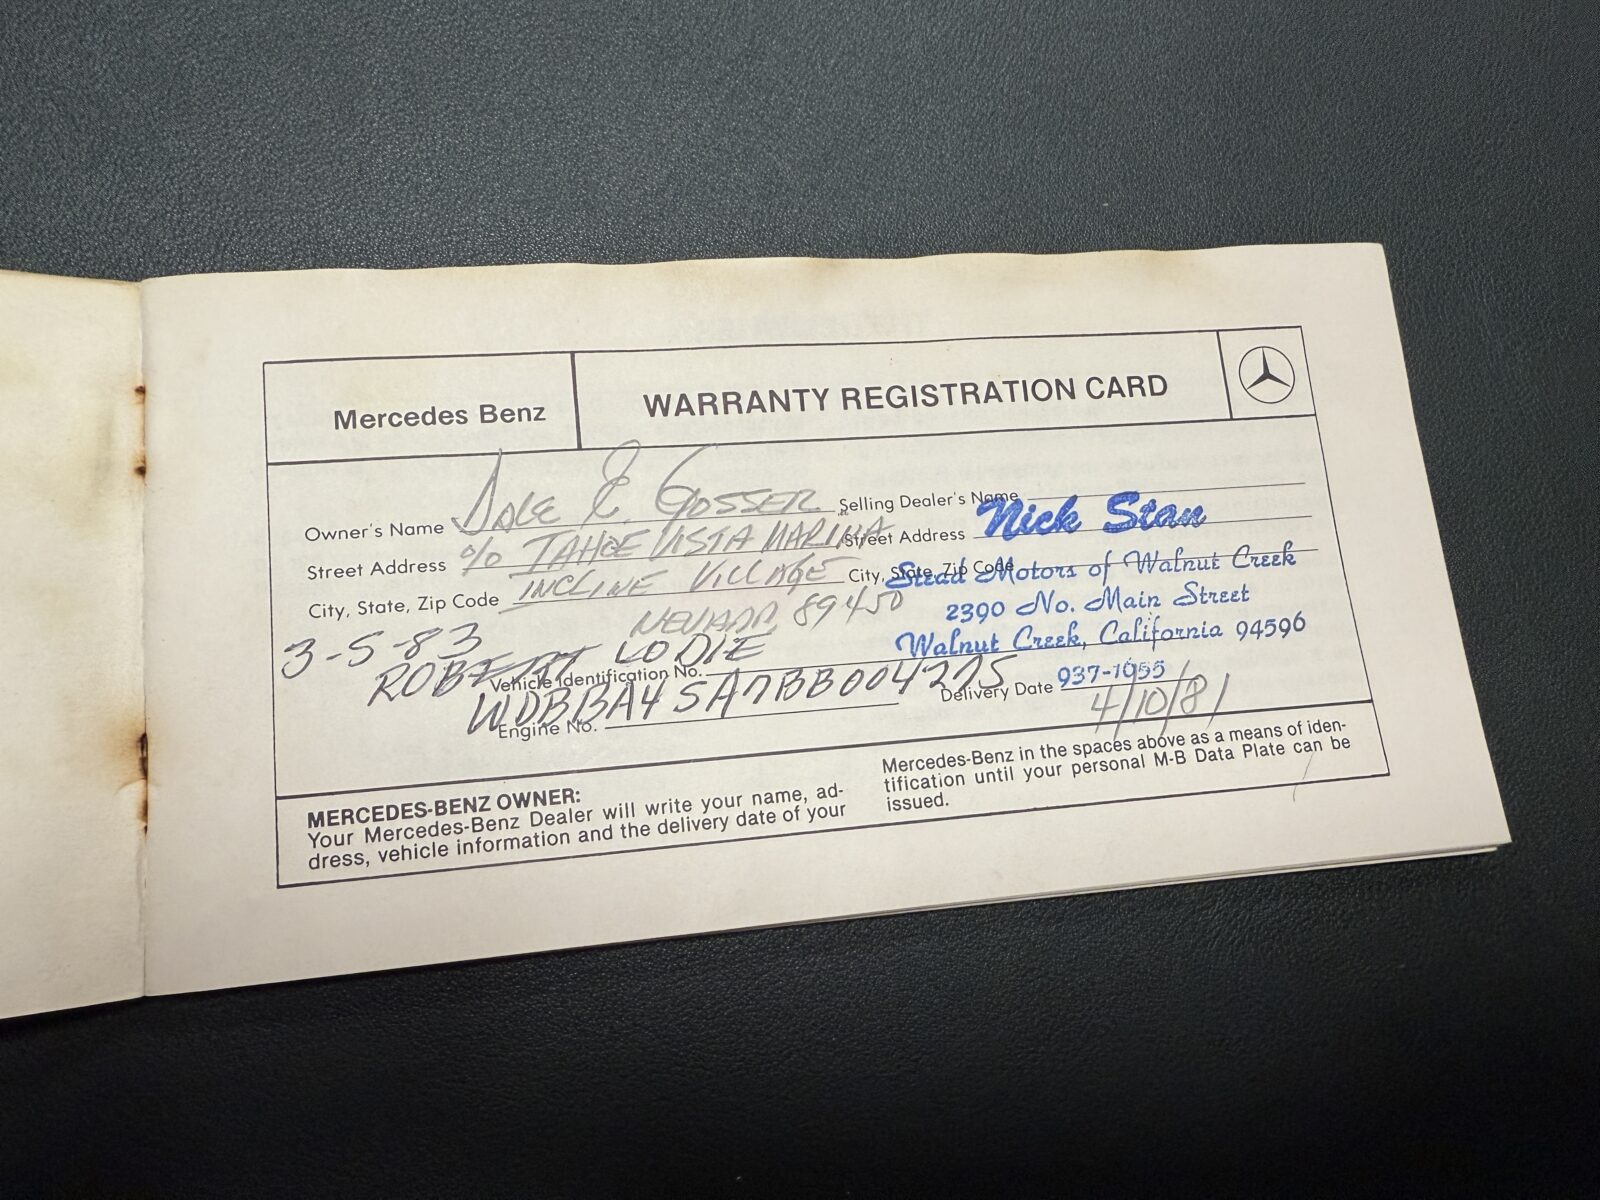 Mercedes Benz
WARRANTY REGISTRATION CARD
Owner's Name DALE E. GOSSER
Street Address c/o TAHOE VISTA MARINA
City, State, Zip Code INCLINE VILLAGE
NEVADA 89450
3-5-83
ROBERT LODIE
Vehicle Identification No.
WDBBA45A7BB004275
Engine No.
Selling Dealer's Name
Nick Stan
Street Address
City, State, Zip Code
Stead Motors of Walnut Creek
2390 No. Main Street
Walnut Creek, California 94596
937-1655
Delivery Date 4/10/81
MERCEDES-BENZ OWNER:
Your Mercedes-Benz Dealer will write your name, ad-
dress, vehicle information and the delivery date of your
Mercedes-Benz in the spaces above as a means of iden-
tification until your personal M-B Data Plate can be
issued.